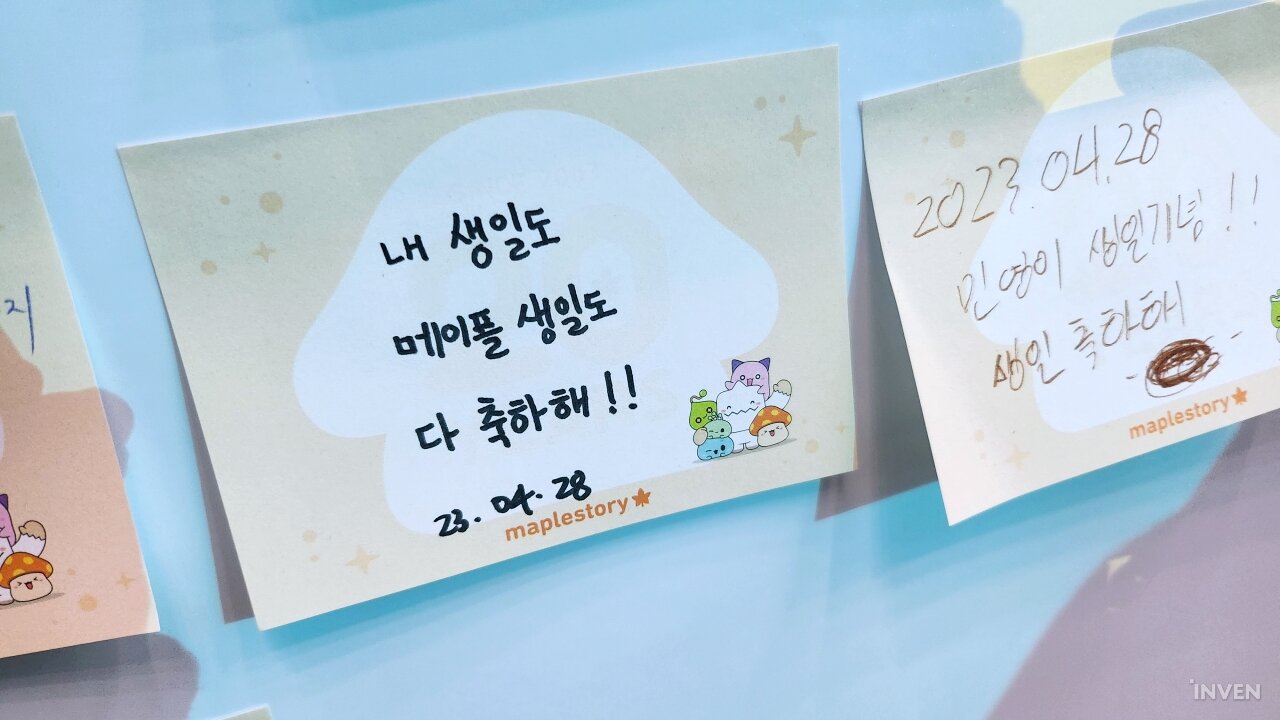 지
내 생일도
메이플 생일도
다 축하해!!
23. 04. 28
maplestory
2023.04.28
민영이 생일기념!!
생일 축하해
maplestory
INVEN